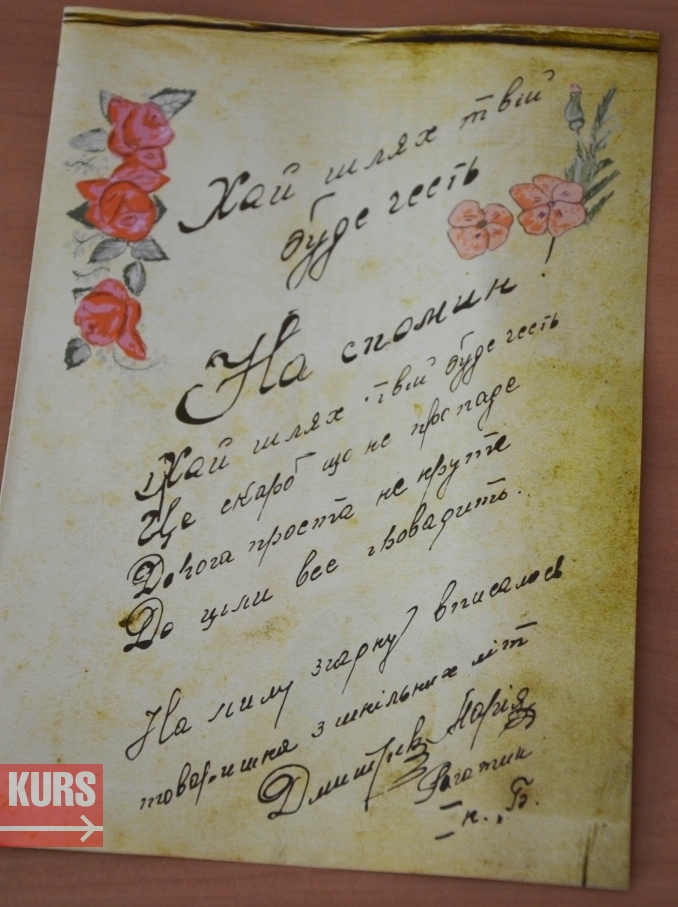 Хай шлях твій
буде честь
На спомин!
Хай шлях твій буде честь
Це скарб що не пропаде
Дорога проста не крута
До ціли все провадить.
На милу згадку вписалась
товаришка з шкільних літ
Дмитрів Марія
Рогатин
I к. „Б.
KURS